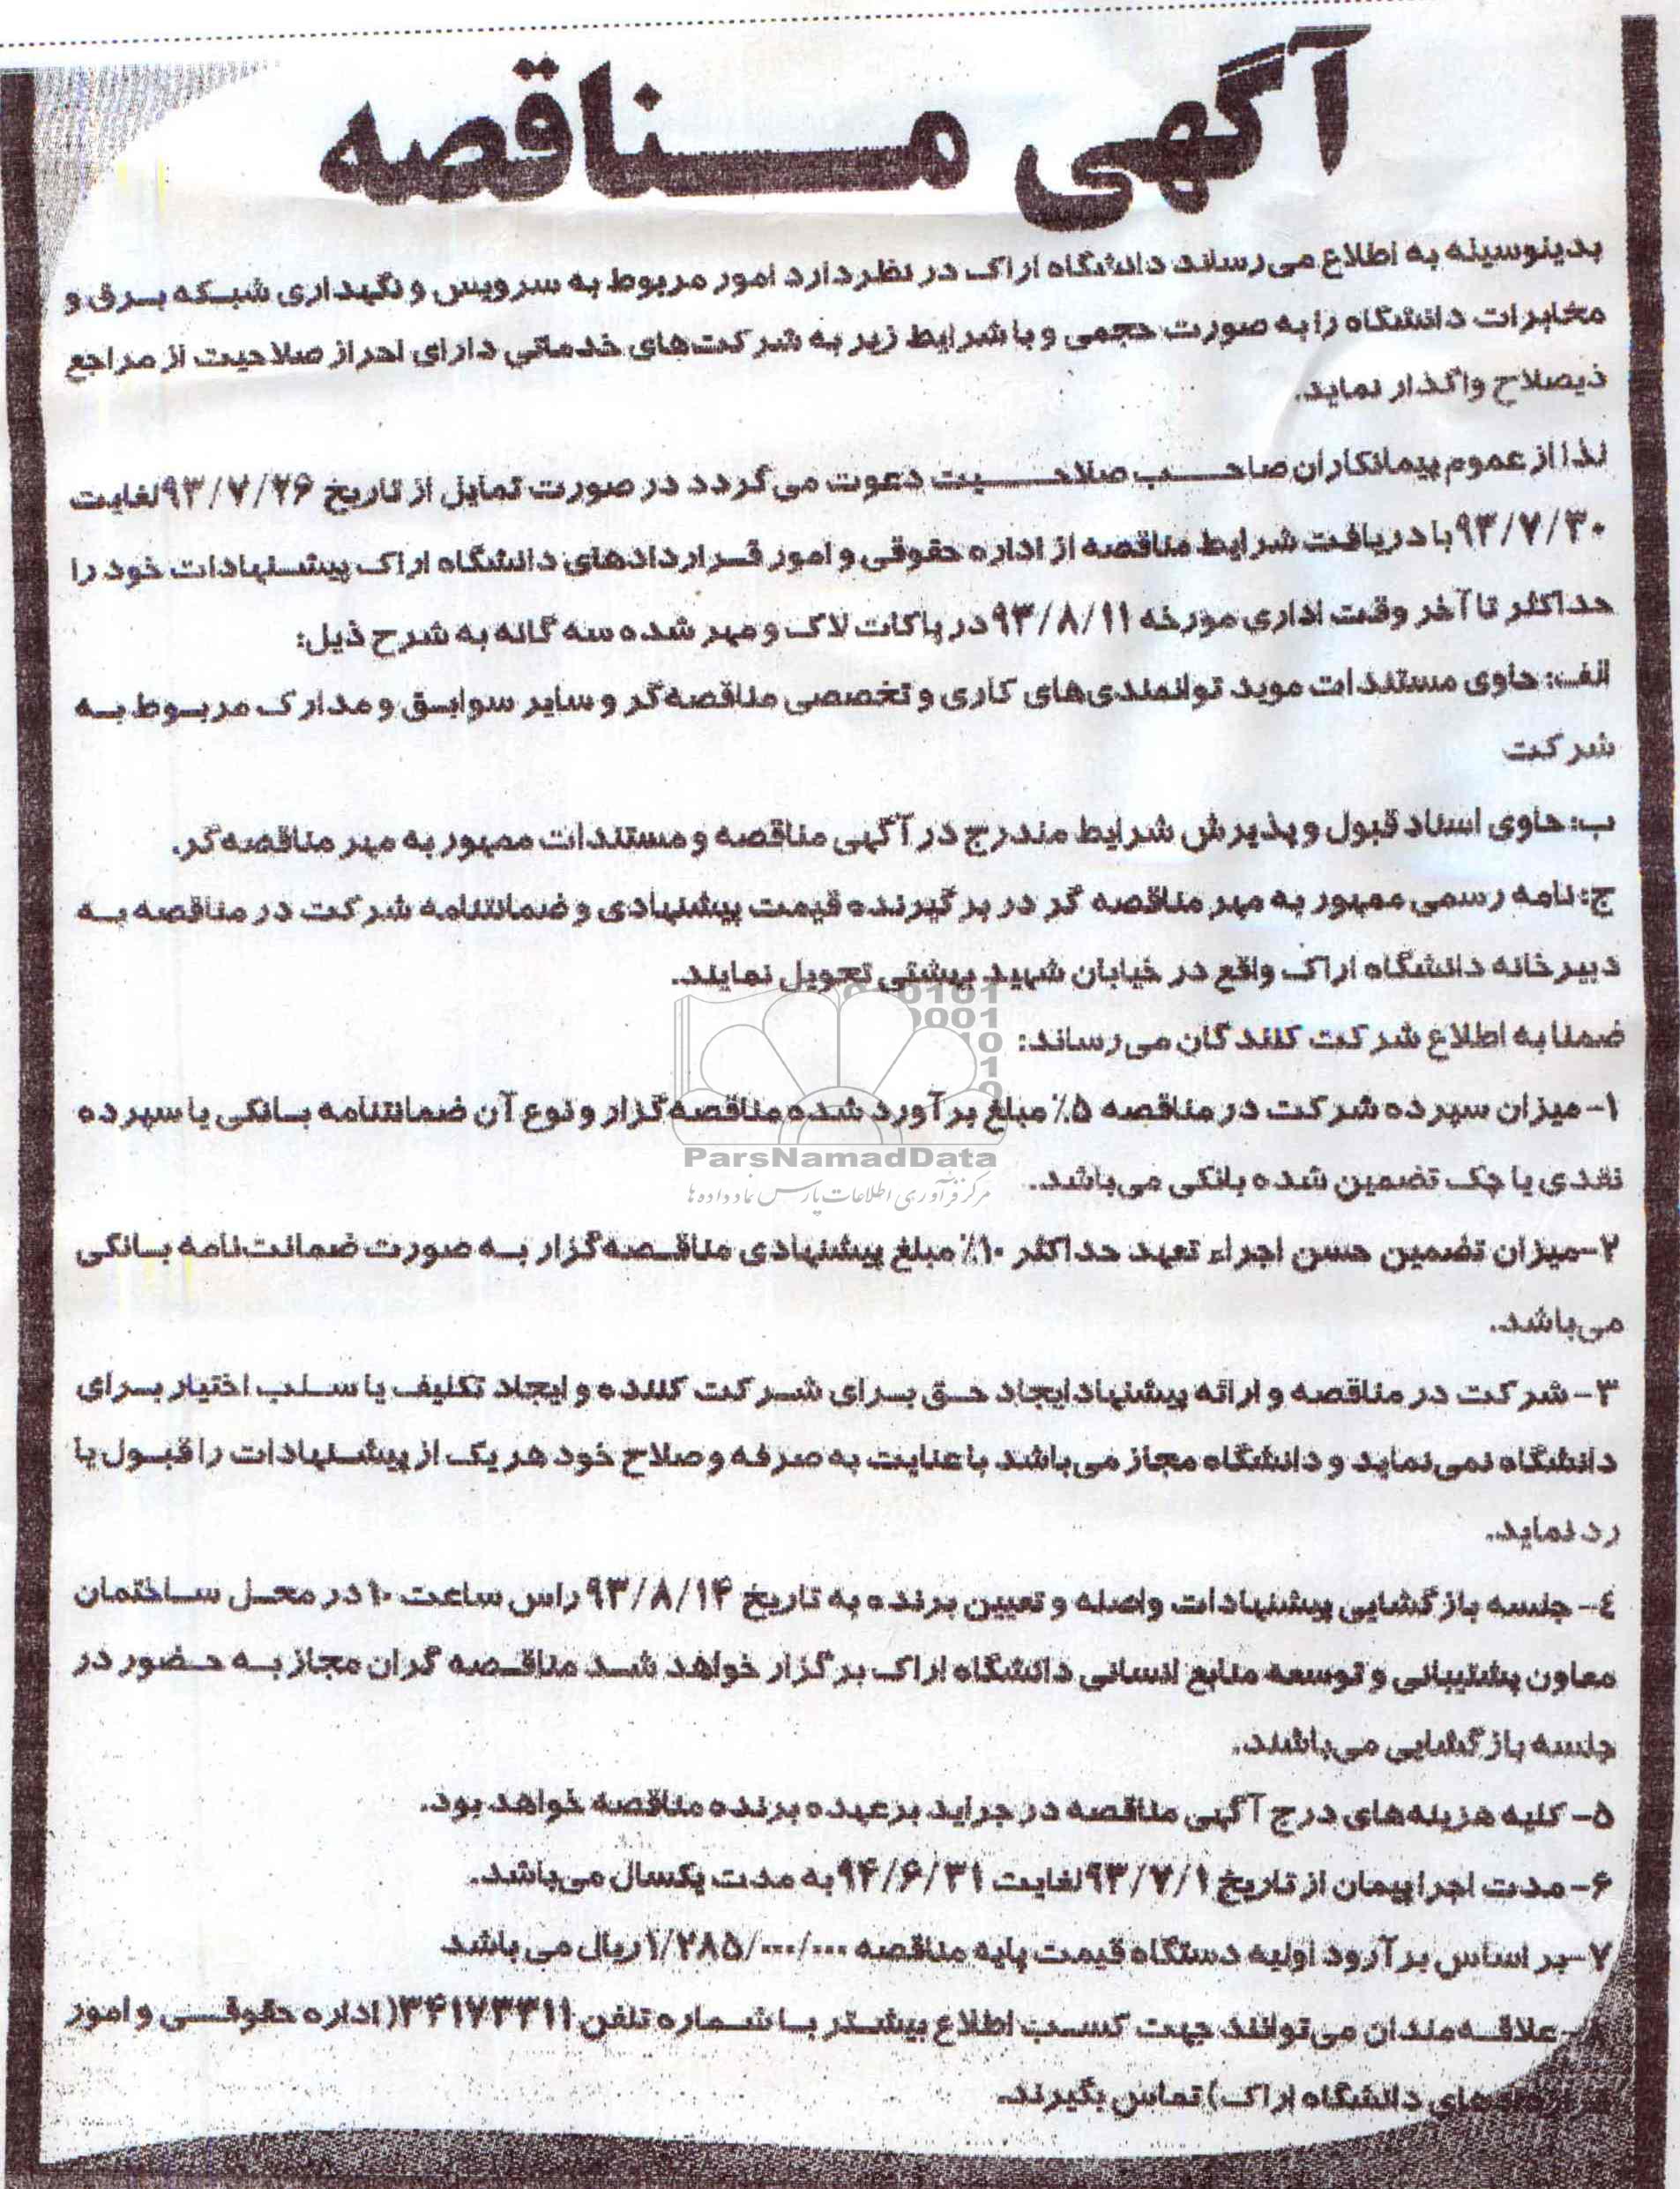 آگهی مناقصه
بدینوسینه به اطلاع می‌رساند دانشگاه اراک در نظر دارد امور مربوط به سرویس و نگهداری شبکه برق و
مخابرات دانشگاه را به صورت حجمی و با شرایط زیر به شرکت‌های خدماتی دارای احراز صلاحیت از مراجع
ذیصلاح واگذار نماید.
لذا از عموم پیمانکاران صاحب صلاحیت دعوت می‌گردد در صورت تمایل از تاریخ ۹۳/۷/۲۶ لغایت
۹۳/۷/۳۰ با دریافت شرایط مناقصه از اداره حقوقی و امور قراردادهای دانشگاه اراک پیشنهادات خود را
حداکثر تا آخر وقت اداری مورخه ۹۳/۸/۱۱ در پاکات لاک و مهر شده سه گانه به شرح ذیل:
الف: حاوی مستندات موید توانمندی‌های کاری و تخصصی مناقصه‌گر و سایر سوابق و مدارک مربوط به
شرکت
ب: حاوی اسناد قبول و پذیرش شرایط مندرج در آگهی مناقصه و مستندات ممهور به مهر مناقصه‌گر.
ج: نامه رسمی ممهور به مهر مناقصه گر در بر گیرنده قیمت پیشنهادی و ضمانتنامه شرکت در مناقصه به
دبیرخانه دانشگاه اراک واقع در خیابان شهید بهشتی تحویل نمایند.
ضمنا به اطلاع شرکت کنندگان می‌رساند:
۱- میزان سپرده شرکت در مناقصه ۵٪ مبلغ برآورد شده مناقصه‌گزار و نوع آن ضمانتنامه بانکی یا سپرده
ParsNamadData
نقدی یا چک تضمین شده بانکی می‌باشد.
مرکز فرآوری اطلاعات پارس نماد داده ها
۲- میزان تضمین حسن اجراء تعهد حداکثر ۱۰٪ مبلغ پیشنهادی مناقصه‌گزار به صورت ضمانت‌نامه بانکی
می‌باشد.
۳- شرکت در مناقصه و ارائه پیشنهاد ایجاد حق برای شرکت کننده و ایجاد تکلیف یا سلب اختیار برای
دانشگاه نمی‌نماید و دانشگاه مجاز می‌باشد با عنایت به صرفه و صلاح خود هر یک از پیشنهادات را قبول یا
رد نماید.
٤- جلسه بازگشایی پیشنهادات واصله و تعیین برنده به تاریخ ۹۳/۸/۱۴ راس ساعت ۱۰ در محل ساختمان
معاون پشتیبانی و توسعه منابع انسانی دانشگاه اراک برگزار خواهد شد مناقصه گران مجاز به حضور در
جلسه بازگشایی می‌باشند.
۵- کلیه هزینه‌های درج آگهی مناقصه در جراید بر عهده برنده مناقصه خواهد بود.
۶- مدت اجرا پیمان از تاریخ ۹۳/۷/۱ لغایت ۹۴/۶/۳۱ به مدت یکسال می‌باشد.
۷- بر اساس برآرود اولیه دستگاه قیمت پایه مناقصه ۱/۲۸۵/۰۰۰/۰۰۰ ریال می باشد
۸- علاقه‌مندان می‌توانند جهت کسب اطلاع بیشتر با شماره تلفن ۳۴۱۷۳۳۱۱ (اداره حقوقی و امور
قراردادهای دانشگاه اراک) تماس بگیرند.